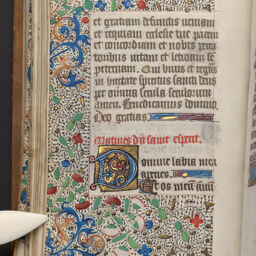 et gratiam defunctis veniam
et requiem ecclesie tue pacem
et concordiam et nobis pecca
toribus vitam et leticiam se
piternam. Qui vivis et regnas
in unitate spiritus sancti deus
per omnia secula seculorum
amen. Benedicamus domino.
Deo gratias.
Matines du saint esprit.
Domine labia mea
aperies.
Et os meum annu